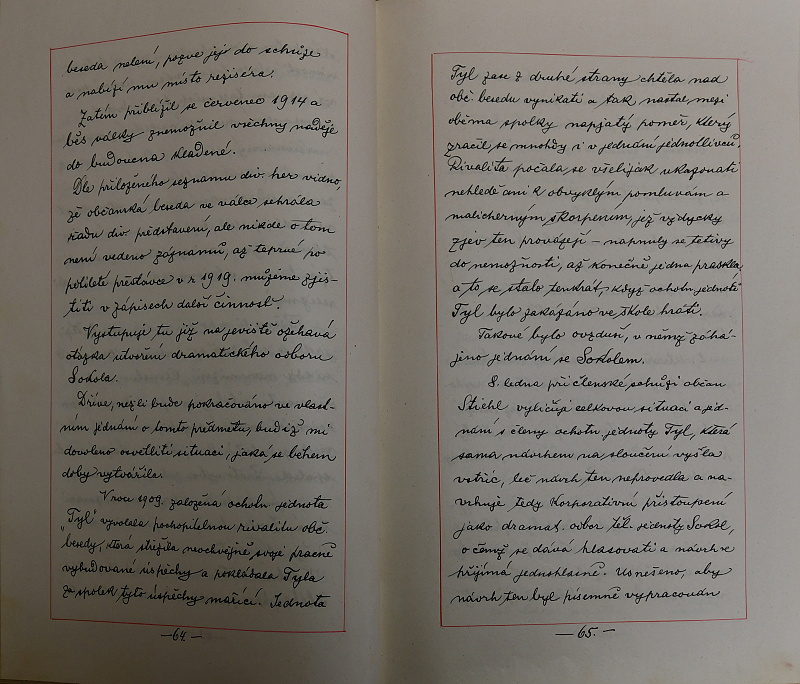 beseda nelení, pozve jej do schůze
a nabízí mu místo režiséra.
Zatím přiblížil se červenec 1914 a
běs války znemožnil všechny naděje
do budoucna kladené.
Dle přiloženého seznamu div. her vidno,
že občanská beseda ve válce sehrála
řadu div. představení, ale nikde o tom
není vedeno záznamů, až teprve po
pětileté přestávce v r. 1919. můžeme zjis-
titi v zápisech další činnost.
Vystupuje tu již na jeviště ožehavá
otázka utvoření dramatického odboru
Sokola.
Dříve, nežli bude pokračováno ve vlast-
ním jednání o tomto předmětu, budiž mi
dovoleno osvětliti situaci, jaká se během
doby vytvářila.
V rou 1909. založená ochotn. jednota
"Tyl" vyvolala pochopitelnou rivalitu obč.
besedy, která střežila neochvějně svoje pracně
vybudované úspěchy a pokládala Tyla
za spolek tyto úspěchy mařící. Jednota
—64.—
Tyl zase z druhé strany chtěla nad
obč. besedu vynikati a tak nastal mezi
oběma spolky napjatý poměr, který
zračil se mnohdy i v jednání jednotlivců.
Rivalita počala se všelijak ukazovati
nehledě ani k obvyklým pomluvám a
malicherným škorpením, jež vždycky
zjev ten provázejí – napnuly se tetivy
do nemožnosti, až konečně jedna praskla,
a to se stalo tenkrát, když ochotn. jednotě
Tyl bylo zakázáno ve škole hráti.
Takové bylo ovzduší, v němž zahá-
jeno jednání se Sokolem.
8. ledna při členské schůzi občan
Stiehl vyličuje celkovou situaci a jed-
nání s členy ochotn. jednoty Tyl, která
sama návrhem na sloučení vyšla
vstříc, leč návrh ten neprovedla a na-
vrhuje tedy korporativní přistoupení
jako dramat. odbor těl. jednoty Sokol,
o čemž se dává hlasovati a návrh se
přijímá jednohlasně. Usnešeno, aby
návrh ten byl písemně vypracován
—65.—